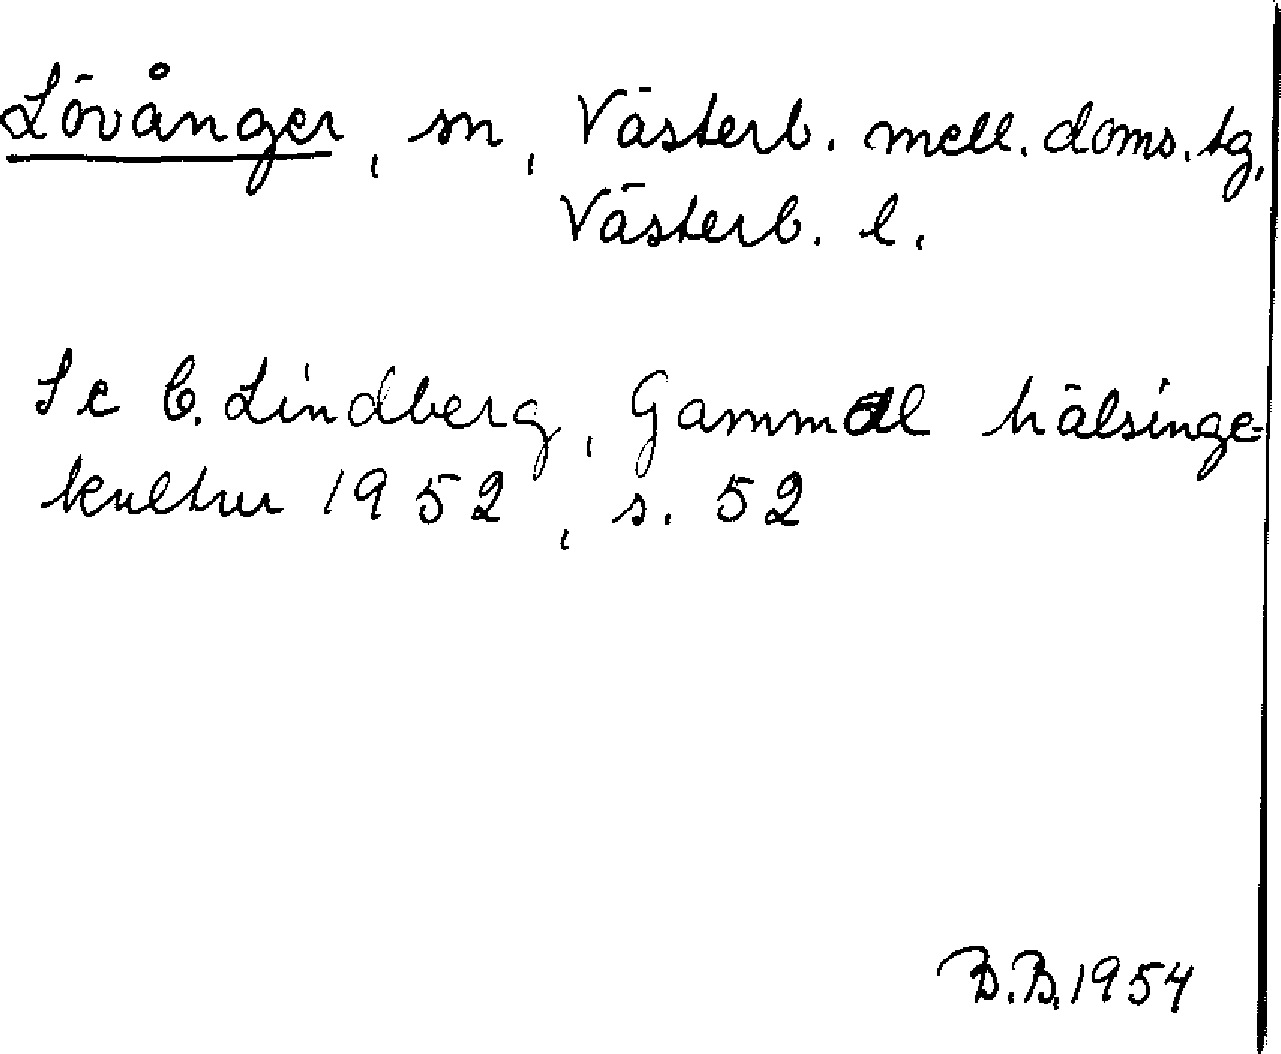 Lövånger, sn, Västerb. mell. doms. tg,
Västerb. l.
Se C. Lindberg, Gammal hälsinge-
kultur 1952, s. 52
B.B. 1954